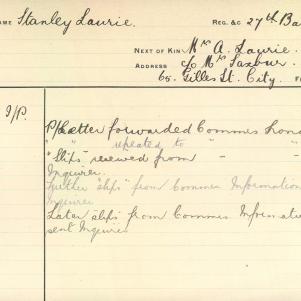 NAME Stanley Laurie. REG. &C 27th Ba
NEXT OF KIN Mrs A. Laurie.
ADDRESS c/o Mrs Saxour.
65. Gilles St. City.
I/P P/c Letter forwarded Commes Lond
" " repeated to " "
"Slips" received from " "
Inquirer.
Further "slips" from Commes Information
Inquirer
Later slips from Commes Informati
sent Inquirer